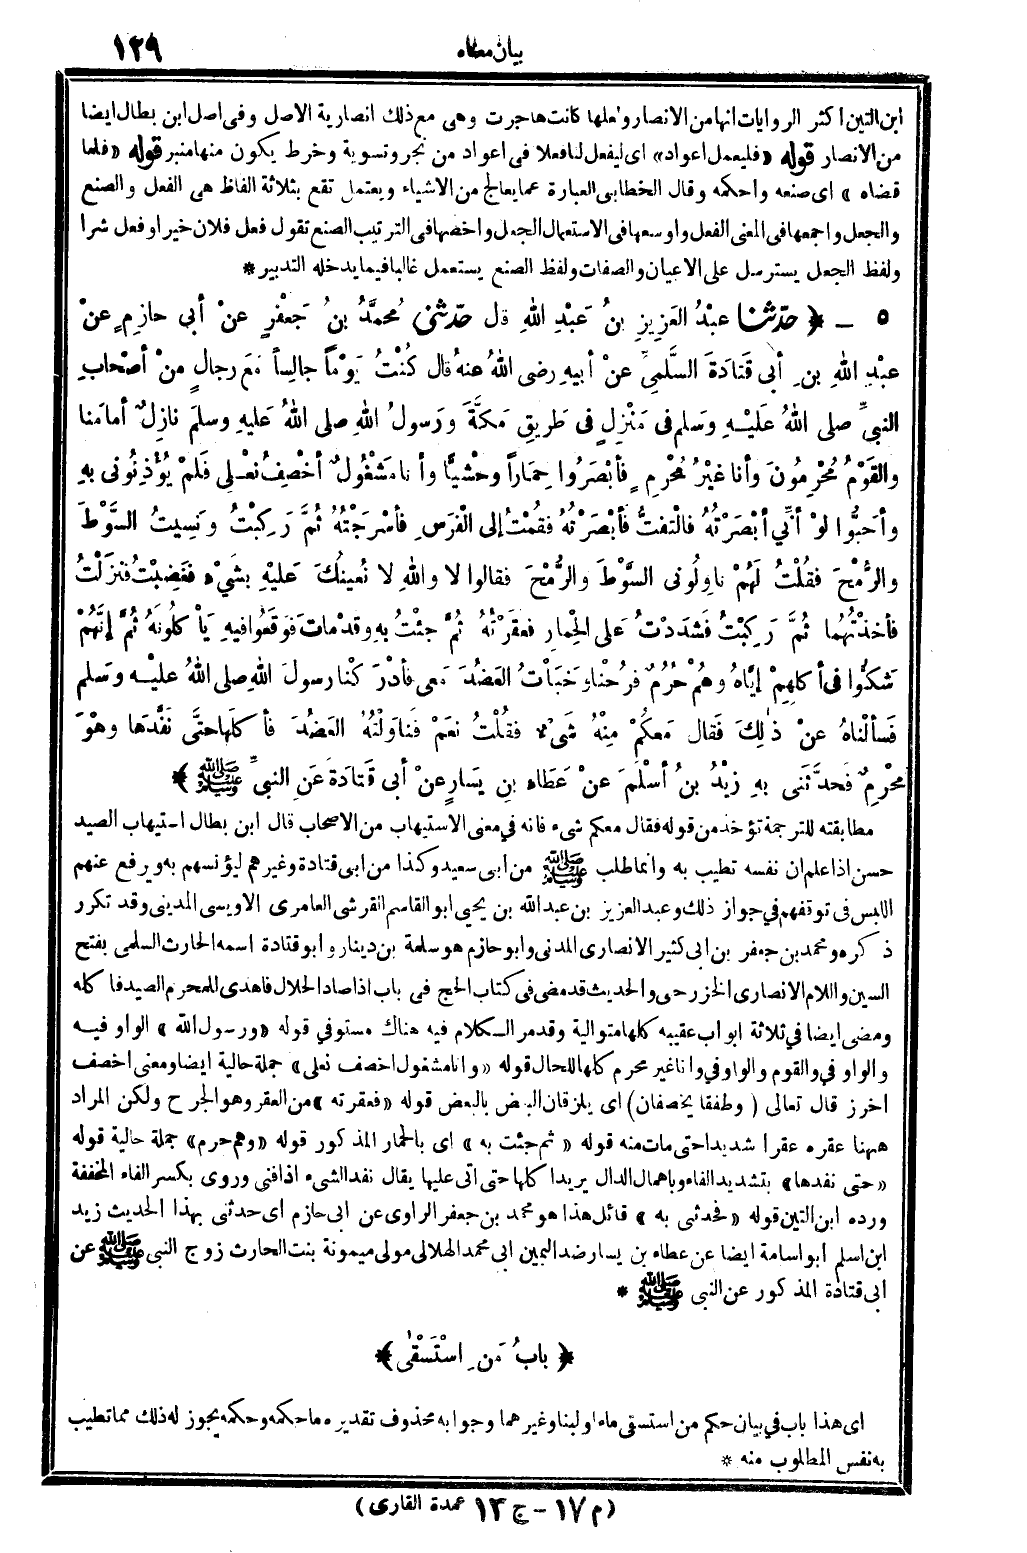 بيان معناه ١٢٩
ابن التين اكثر الروايات انها من الانصار ولعلها كانت هاجرت وهى مع ذلك انصارية الاصل وفى اصل ابن بطال ايضا
من الانصار قوله «فليعمل اعواد» اى ليفعل لنا فعلا فى اعواد من نجر وتسوية وخرط يكون منها منبر قوله «فلما
قضاه» اى صنعه واحكمه وقال الخطابى العبارة عما يعالج من الاشياء ويعتمل تقع بثلاثة الفاظ هى الفعل والصنع
والجعل واجمعها فى المعنى الفعل واوسعها فى الاستعمال الجعل واخصها فى الترتيب الصنع تقول فعل فلان خيرا وفعل شرا
ولفظ الجعل يسترسل على الاعيان والصفات ولفظ الصنع يستعمل غالبا فيما يدخله التدبير *
٥ ـ ﴿ حدّثنا عبْدُ العَزِيزِ بنُ عَبْدِ اللهِ قل حدّثنى مُحمَّدُ بنُ جَعْفرٍ عنْ أبى حازِمٍ عنْ
عبْدِ اللهِ بنِ أبى قَتادَةَ السَّلَمِىِّ عنْ أبيهِ رضى اللهُ عنهُ قال كُنْتُ يَوْماً جالِساً مَعَ رجالٍ منْ أصْحابِ
النبىِّ صلى اللهُ عَلَيْهِ وسَلم فى مَنْزِلٍ فى طَرِيقِ مَكَّةَ ورَسولُ اللهِ صلى اللهُ عَليهِ وسلمَ نازِلٌ أمامَنا
والقَوْمُ مُحْرِمُونَ وأنا غيْرُ مُحْرِمٍ فأبْصَرُوا حِمَاراً وحْشيًّا وأنا مَشْغُولٌ أخْصِفُ نعْلِى فَلَمْ يُؤْذِنُونى بهِ
وأحَبُّوا لوْ أنِّي أبْصَرْتُهُ فالْتفتُّ فأبْصَرْتُهُ فقُمْتُ إلى الْفَرَسِ فأسْرَجْتُهُ ثُمَّ رَكِبْتُ ونَسِيتُ السَّوْطَ
والرُّمْحَ فقُلْتُ لَهُمْ ناوِلُونى السَّوْطَ والرُّمْحَ فقالوا لا واللهِ لا نُعينُكَ عَليْهِ بشَىْءٍ فغَضِبْتُ فنزَلْتُ
فأخذْتُهُما ثُمَّ رَكِبْتُ فشَدَدْتُ عَلى الْحِمارِ فعَقَرْتُهُ ثُمَّ جِئْتُ بهِ وقدْ ماتَ فوَقعُوا فيهِ يَأْكلُونَهُ ثُمَّ إنَّهُمْ
شَكُّوا فى أكلِهِمْ إيَّاهُ وهُمْ حُرُمٌ فرُحْنا وخَبَأْتُ العَضُدَ مَعى فأدْرَكْنا رسولَ اللهِ صلى اللهُ عليْهِ وسَلم
فَسألْناهُ عنْ ذٰلِكَ فَقال مَعكُمْ مِنْهُ شَىْءٌ فقُلْتُ نعَمْ فَناوَلْتُهُ العَضُدَ فأكلَها حتَّى نَفَّدَها وهْوَ
مُحْرِمٌ فحدَّثَنى بهِ زَيْدُ بنُ أسْلَمَ عنْ عَطاءِ بنِ يَسارٍ عنْ أبى قَتادَةَ عَنِ النبىِّ ﷺ ﴾
مطابقته للترجمة تؤخذ من قوله فقال معكم شىء فانه في معنى الاستيهاب من الاصحاب قال ابن بطال استيهاب الصيد
حسن اذا علم ان نفسه تطيب به وانما طلب ﷺ من ابى سعيد وكذا من ابى قتادة وغيرهم ليؤنسهم به ويرفع عنهم
اللبس فى توقفهم في جواز ذلك وعبد العزيز بن عبد الله بن يحيى ابو القاسم القرشى العامرى الاويسى المدينى وقد تكرر
ذكره ومحمد بن جعفر بن ابى كثير الانصارى المدنى وابو حازم هو سلمة بن دينار وابو قتادة اسمه الحارث السلمى بفتح
السين واللام الانصارى الخزرجى والحديث قد مضى فى كتاب الحج فى باب اذا صاد الحلال فاهدى للمحرم الصيد فا كله
ومضى ايضا في ثلاثة ابواب عقيبه كلها متوالية وقد مر الكلام فيه هناك مستوفي قوله «ورسول الله» الواو فيه
والواو في والقوم والواو في وانا غير محرم كلها للحال قوله «وانا مشغول اخصف نعلى» جملة حالية ايضا ومعنى اخصف
اخرز قال تعالى (وطفقا يخصفان) اى يلزقان البعض بالبعض قوله «فعقرته» من العقر وهو الجرح ولكن المراد
ههنا عقره عقرا شديدا حتى مات منه قوله «ثم جئت به» اى بالحمار المذكور قوله «وهم حرم» جملة حالية قوله
«حتى نفدها» بتشديد الفاء وباهمال الدال يريد اكلها حتى اتى عليها يقال نفد الشىء اذا فنى وروى بكسر الفاء المخففة
ورده ابن التين قوله «فحدثنى به» قائل هذا هو محمد بن جعفر الراوى عن ابى حازم اى حدثنى بهذا الحديث زيد
ابن اسلم ابو اسامة ايضا عن عطاء بن يسار ضد اليمين ابى محمد الهلالى مولى ميمونة بنت الحارث زوج النبى ﷺ عن
ابى قتادة المذكور عن النبى ﷺ *
﴿ بابُ مَنِ اسْتَسْقٰى ﴾
اى هذا باب في بيان حكم من استسقى ماء او لبنا وغيرهما وجوابه محذوف تقديره ما حكمه وحكمه يجوز له ذلك مما تطيب
به نفس المطلوب منه *
(م ١٧ – ج ١٣ عمدة القارى)